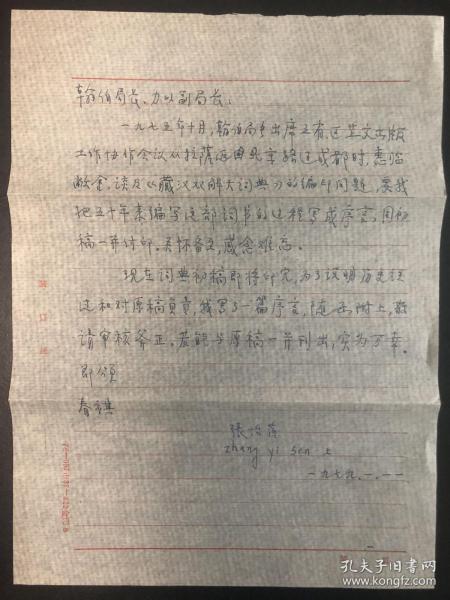 翰伯局长、力以副局长：
一九七五年十月，翰伯局长出席五省、区藏文出版
工作协作会议从拉萨返回北京路过成都时，惠临
敝舍，谈及《藏汉双解大词典》的编印问题，要我
把五十年来编写这部词书的过程写成序言，同初
稿一并付印。关怀备至，感念难忘。
现在词典初稿即将印完，为了说明历史经
过和对原稿负责，我写了一篇序言，随函附上，敬
请审核斧正。若能与原稿一并刊出，实为万幸。
即颂
春祺
張怡蓀
zhang yi sen 上
一九七九.一.一一
孔夫子旧书网
www.kongfz.com